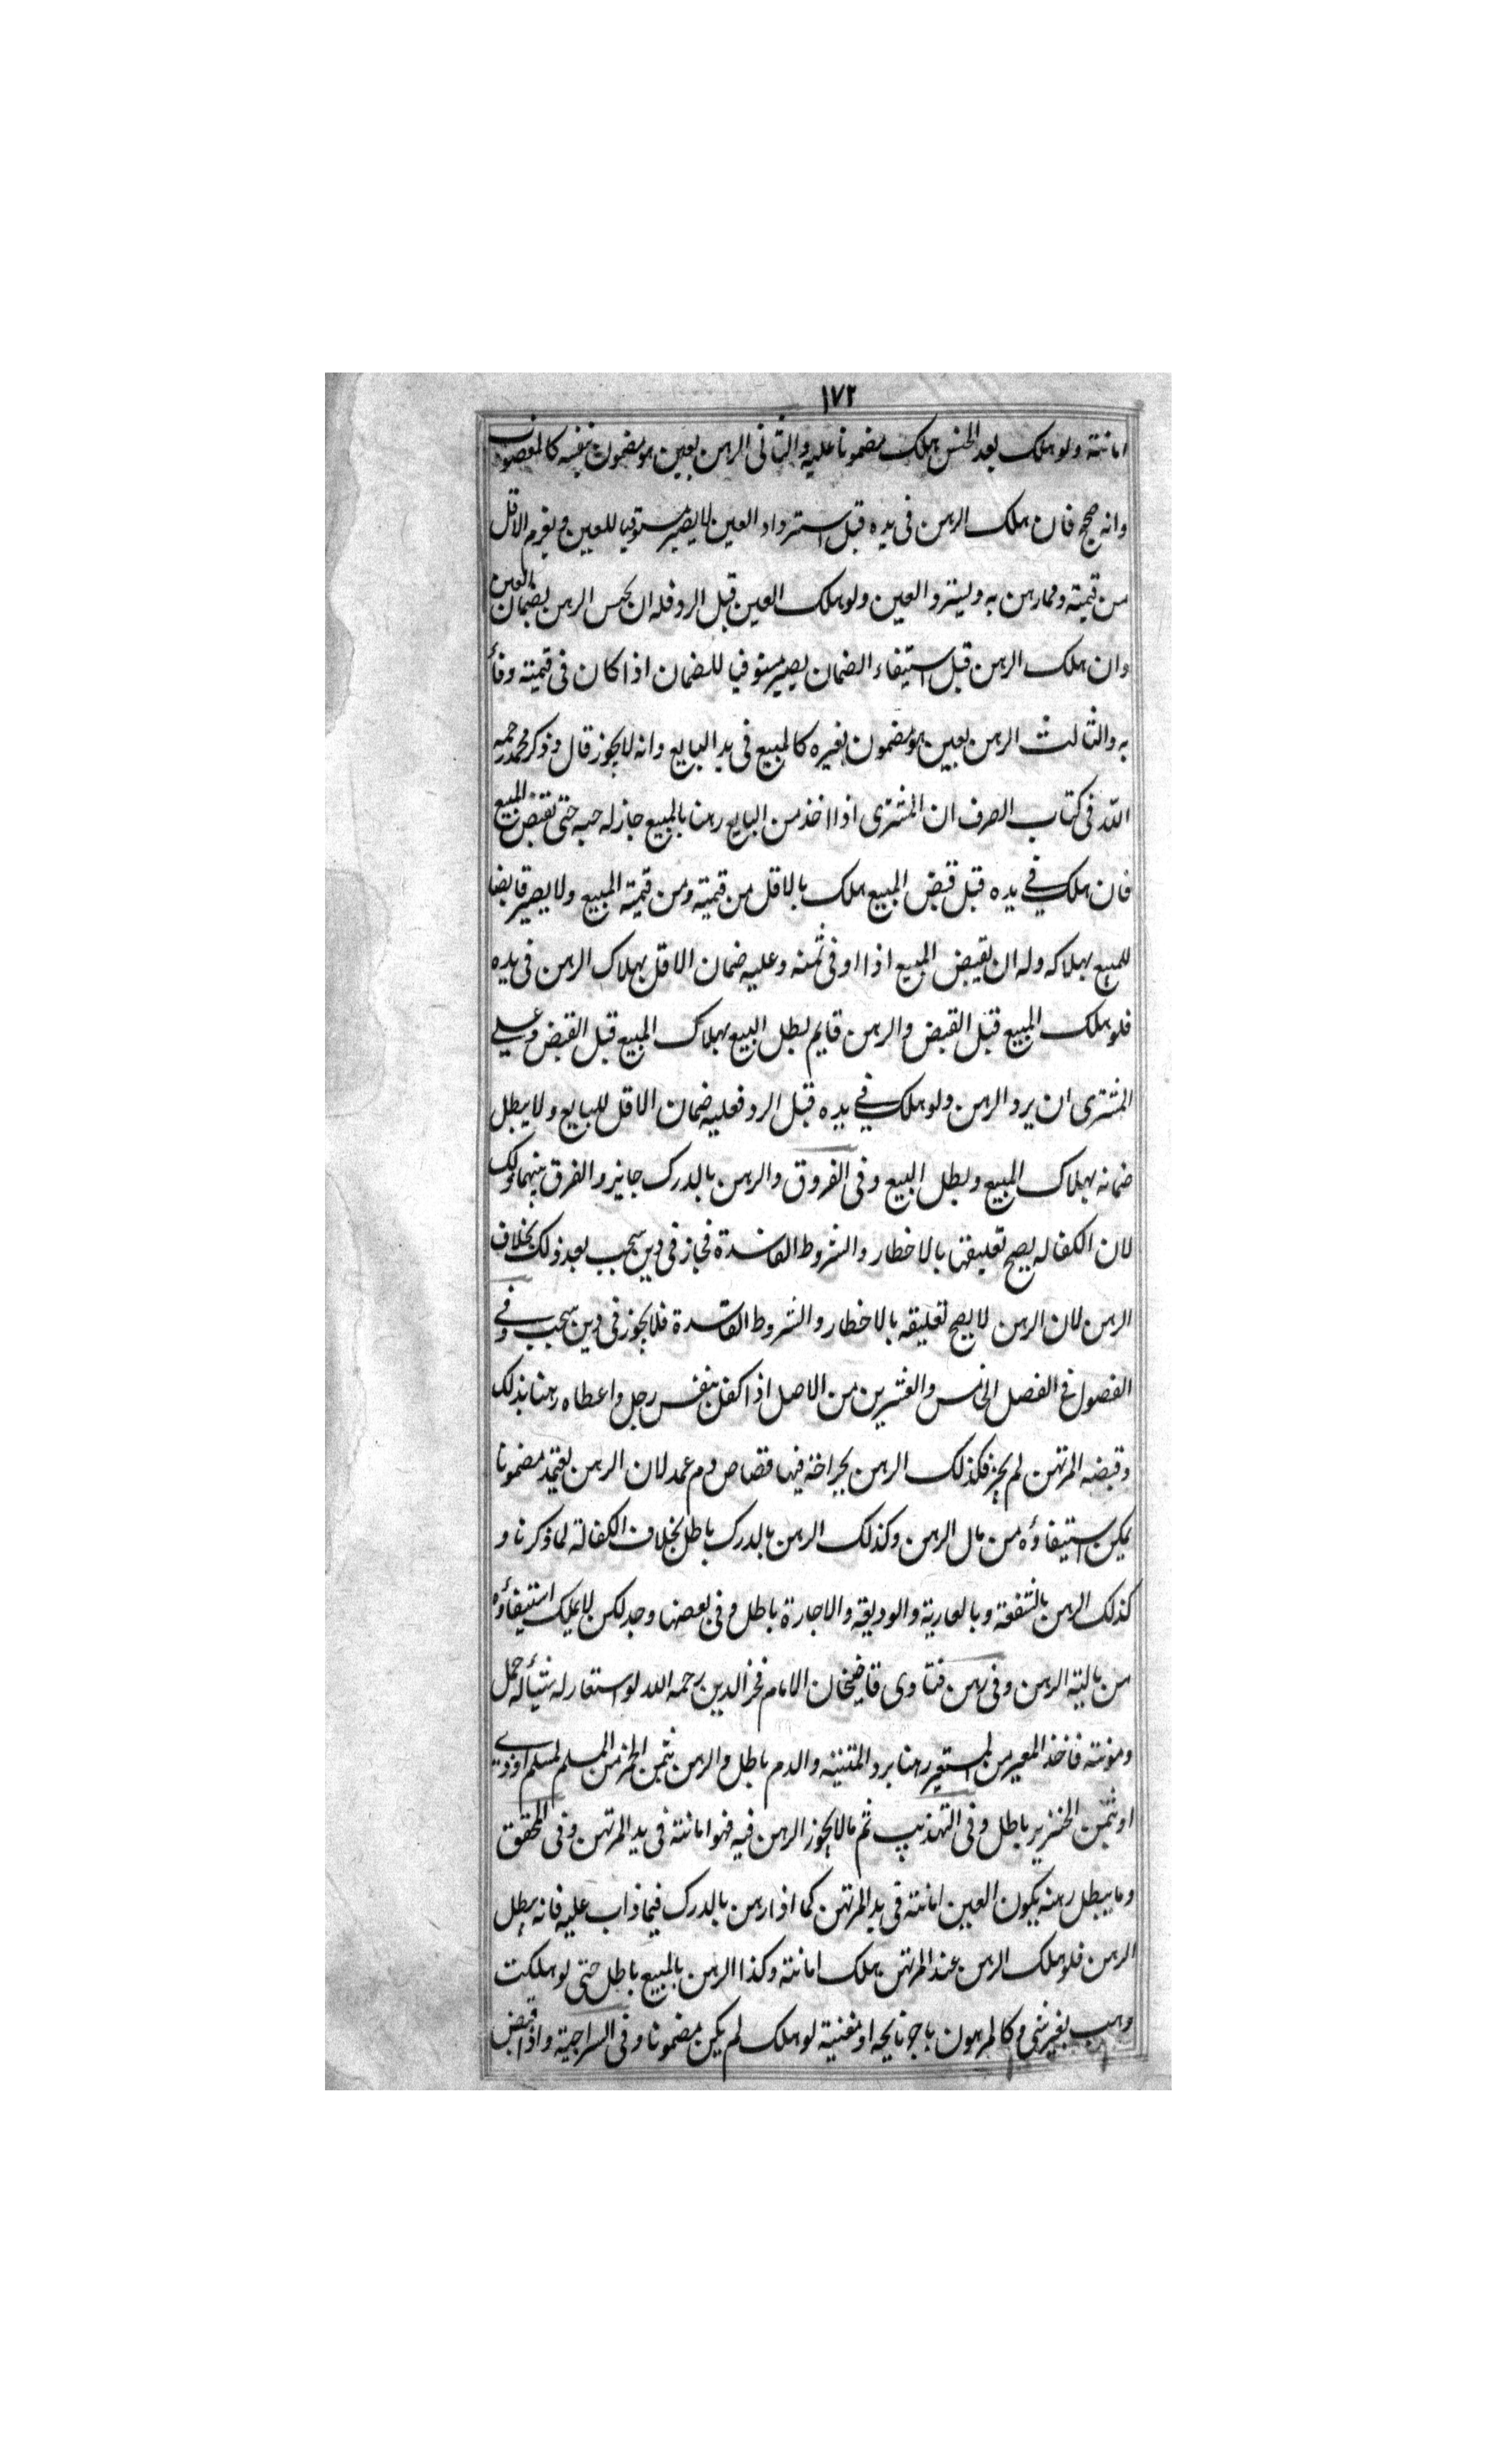 ١٧٢
امانته ولو هلك بعد الحبس هلك مضمونا عليه والثاني الرهن بعين هو مضمون بنفسه كالمغصوب
وانه صحيح فان هلك الرهن فى يده قبل استرداد العين لا يصير مستوفيا للعين ويغرم الاقل
من قيمته ومما رهن به ويسترد العين ولو هلك العين قبل الرد فله ان يحبس الرهن بضمان العين
وان هلك الرهن قبل استيفاء الضمان يصير مستوفيا للضمان اذا كان فى قيمته وفأ
به والثالث الرهن بعين هو مضمون بغيره كالمبيع فى يد البايع وانه لا يجوز قال وذكر محمد رحمه
الله فى كتاب الصرف ان المشترى اذا اخذ من البايع رهنا بالمبيع جاز له حبسه حتى تقبض المبيع
فان هلك في يده قبل قبض المبيع هلك بالاقل من قيمته ومن قيمة المبيع ولا يصير قابضا
للمبيع بهلاكه وله ان يقبض المبيع اذا اوفى ثمنه وعليه ضمان الاقل بهلاك الرهن فى يده
فلو هلك المبيع قبل القبض والرهن قايم بطل البيع بهلاك المبيع قبل القبض وعلي
المشترى ان يرد الرهن ولو هلك في يده قبل الرد فعليه ضمان الاقل للبايع ولا يبطل
ضمانه بهلاك المبيع وبطل البيع وفى الفروق والرهن بالدرك جايز والفرق بينهما
لان الكفاله يصح تعليقها بالاخطار والشروط الفاسدة فجاز فى دين سيجب بعد ذلك بخلاف
الرهن لان الرهن لا يصح تعليقه بالاخطار والشروط الفاسدة فلا يجوز فى دين سيجب وفي
الفصول فى الفصل الخامس والعشرين من الاصل اذا كفل بنفس رجل واعطاه رهنا بذلك
وقبضه المرتهن لم يجز فكذلك الرهن بجراحة فيها قصاص دم عمد لان الرهن يعتمد مضمونا
يمكن استيفاؤه من مال الرهن وكذلك الرهن بالدرك باطل بخلاف الكفالة لما ذكرنا و
كذلك الرهن بالشفعة وبالعارية والوديعة والاجارة باطل وفى بعضها وجد لكن لا يملك استيفاؤه
من مالية الرهن وفى رهن فتاوى قاضيخان الامام فخر الدين رحمه الله لو استعار له شيئا له حمل
ومونته فاخذ المعير من المستعير رهنا برد والميتة والدم باطل والرهن بثمن الخمر من المسلم لمسلم او ذمي
او بثمن الخنزير باطل وفى التهذيب ثم مالا يجوز الرهن فيه فهو امانته فى يد المرتهن وفى المحقق
وما يبطل رهنه يكون العين امانته فى يد المرتهن كما اذا رهن بالدرك فيما ذاب عليه فانه يبطل
الرهن فلو هلك الرهن عند المرتهن هلك امانته وكذا الرهن بالمبيع باطل حتى لو هلكت
بغير شيء كالمرهون باجر نايحه او مغنية لو هلك لم يكن مضمونا وفى السراجية واذا قبض